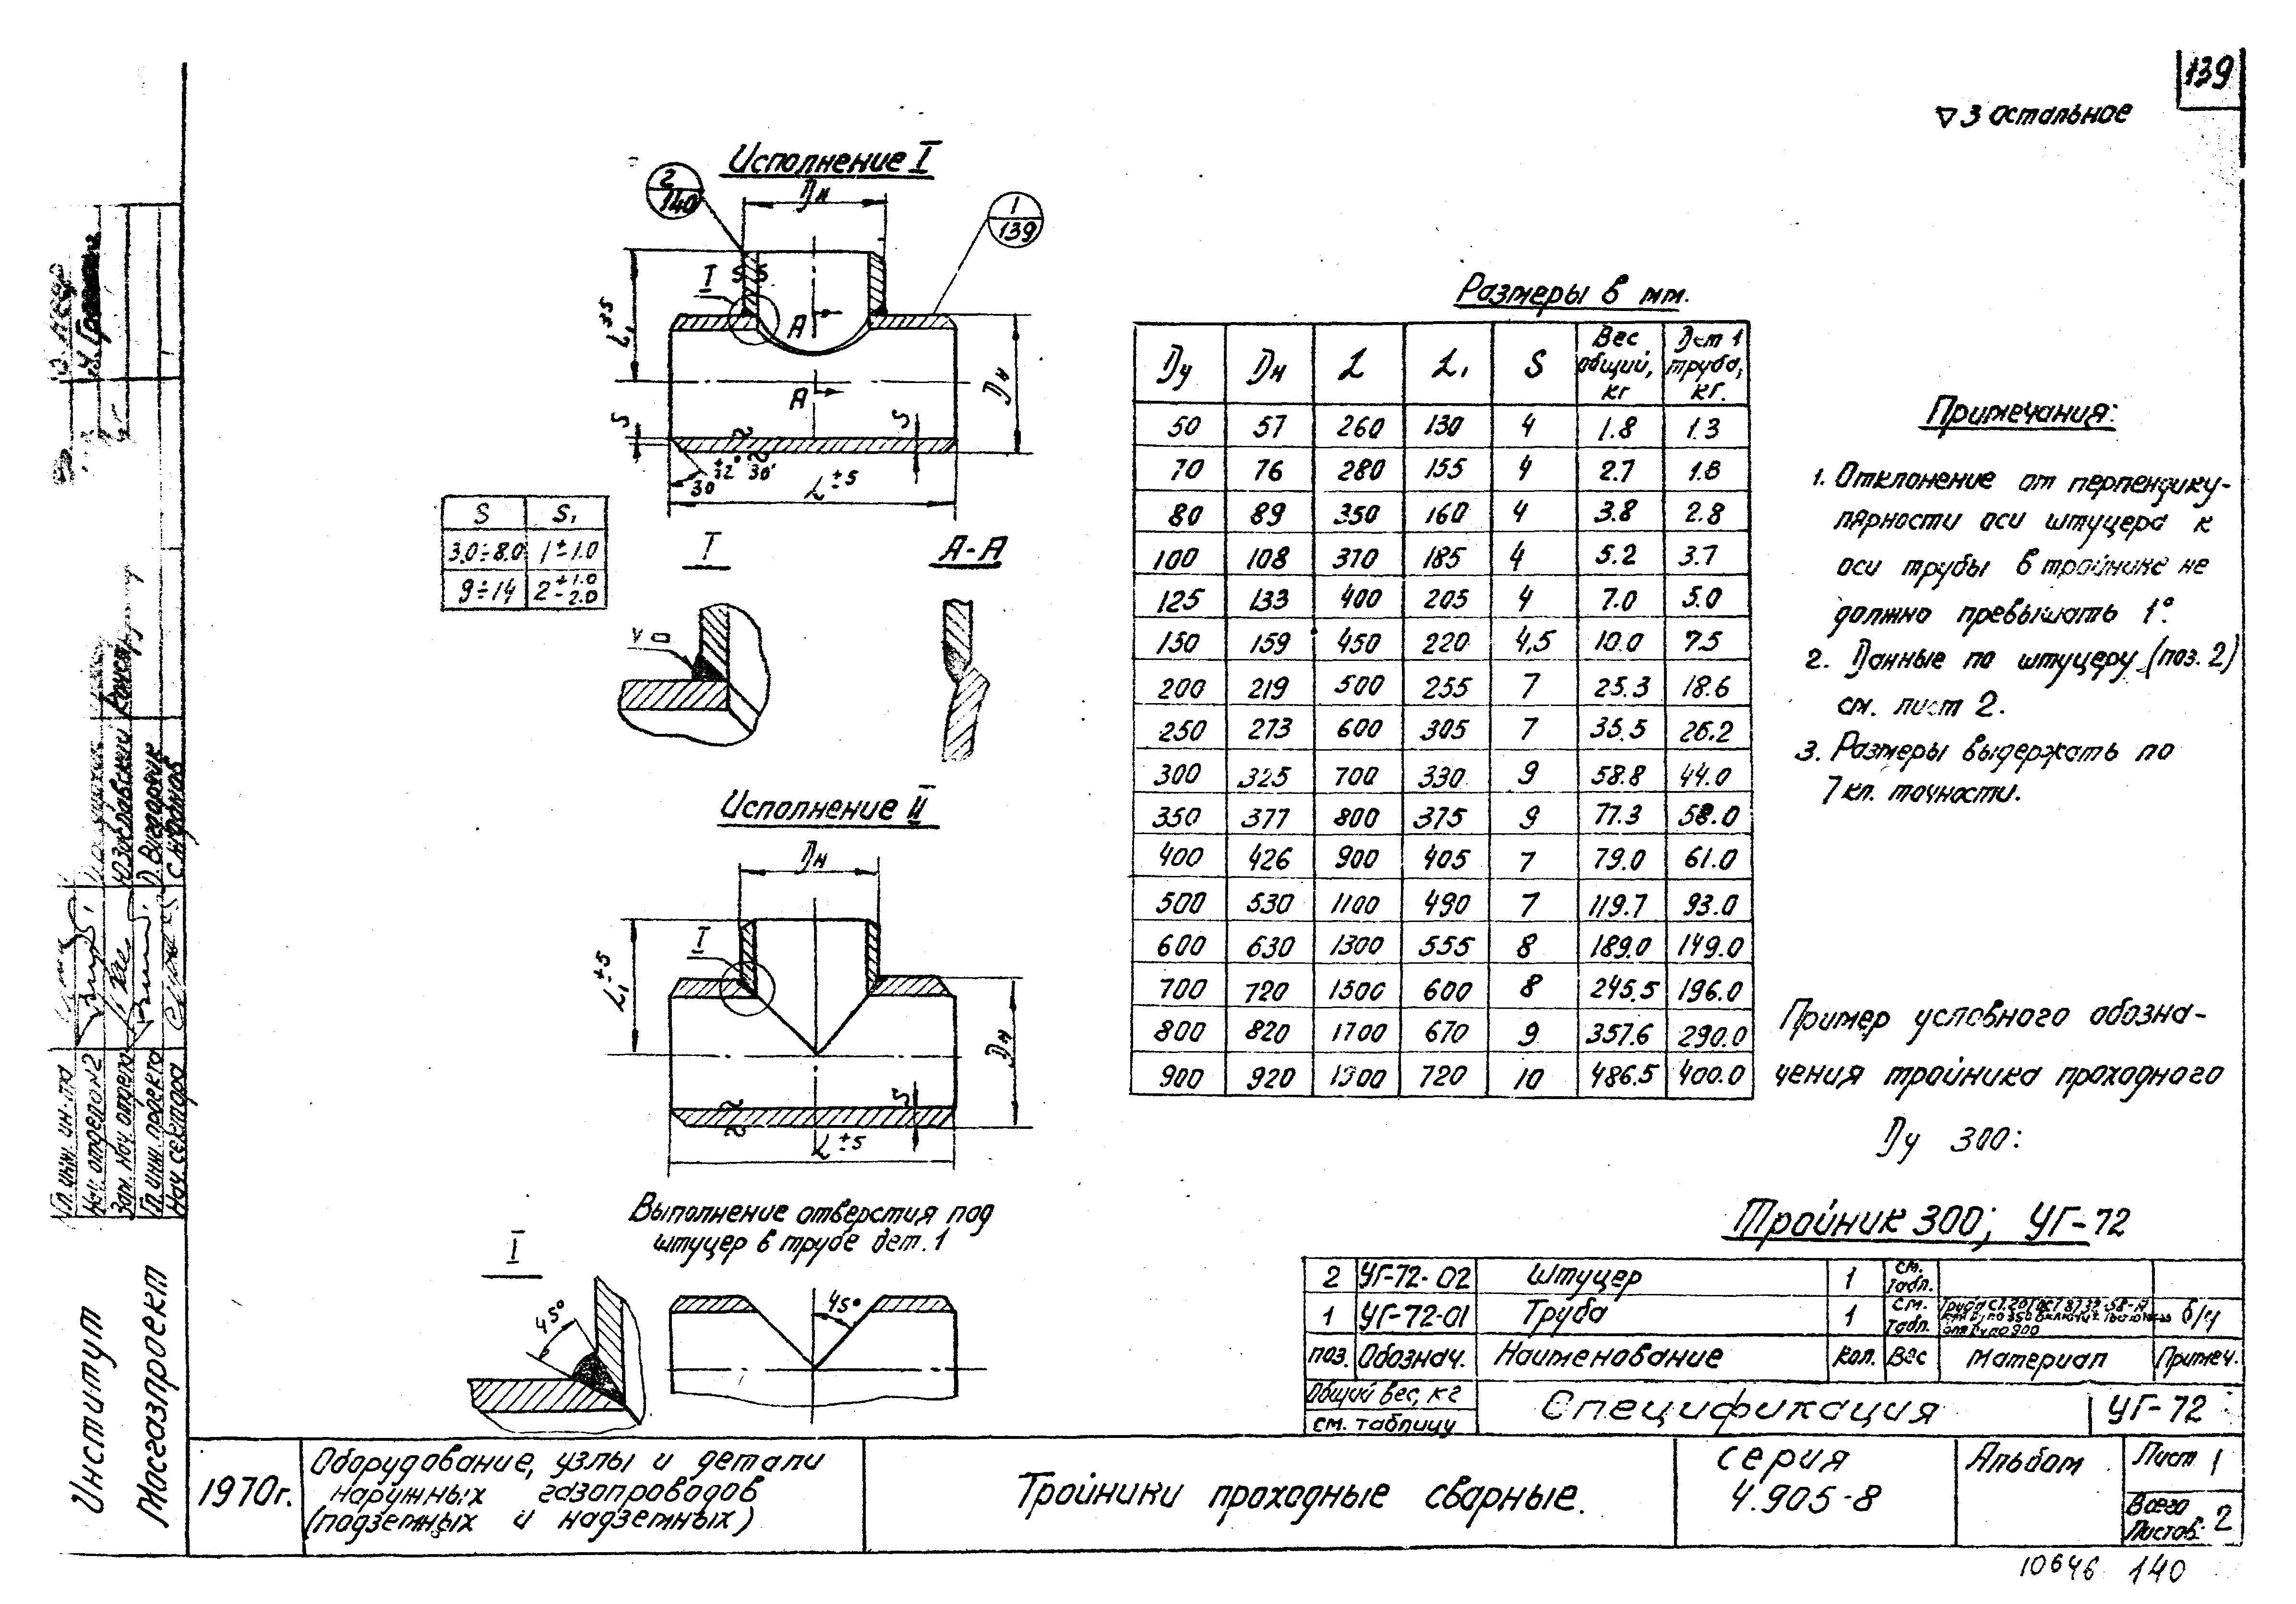 139
▽ 3 остальное
Исполнение I
2
140
Dн
1
139
I
S
S
L₁±5
A
A
Dн
S
S
30 +2° 30'
L±5
S S₁
3.0÷8.0 1±1.0
9÷14 2 +1.0 -2.0
I
A-A
Исполнение II
Dн
I
L₁±5
Dн
S
L±5
Выполнение отверстия под
штуцер в трубе дет. 1
I
45°
45°
Размеры в мм.
Dу Dн L L₁ S Вес общий, кг Дет 1 труба, кг.
50 57 260 130 4 1.8 1.3
70 76 280 155 4 2.7 1.8
80 89 350 160 4 3.8 2.8
100 108 370 185 4 5.2 3.7
125 133 400 205 4 7.0 5.0
150 159 450 220 4,5 10.0 7.5
200 219 500 255 7 25.3 18.6
250 273 600 305 7 35.5 26.2
300 325 700 330 9 58.8 44.0
350 377 800 375 9 77.3 58.0
400 426 900 405 7 79.0 61.0
500 530 1100 490 7 119.7 93.0
600 630 1300 555 8 189.0 149.0
700 720 1500 600 8 245.5 196.0
800 820 1700 670 9 357.6 290.0
900 920 1900 720 10 486.5 400.0
Примечания:
1. Отклонение от перпендику-
лярности оси штуцера к
оси трубы в тройнике не
должно превышать 1°.
2. Данные по штуцеру (поз. 2)
см. лист 2.
3. Размеры выдержать по
7 кл. точности.
Пример условного обозна-
чения тройника проходного
Dу 300:
Тройник 300; УГ-72
2 УГ-72-02 Штуцер 1 см. табл.
1 УГ-72-01 Труба 1 см. табл. б/ч
поз. Обознач. Наименование Кол. Вес Материал Примеч.
Общий вес, кг
см. таблицу
Спецификация
УГ-72
1970г.
Оборудование, узлы и детали
наружных газопроводов
(подземных и надземных)
Тройники проходные сварные.
серия
4.905-8
Альбом
Лист 1
Всего
Листов: 2
10646 140
Институт
Мосгазпроект
Гл. инж. ин-та
Нач. отдела №2
Зам. нач отдела
Гл. инж. проекта
Нач. сектора